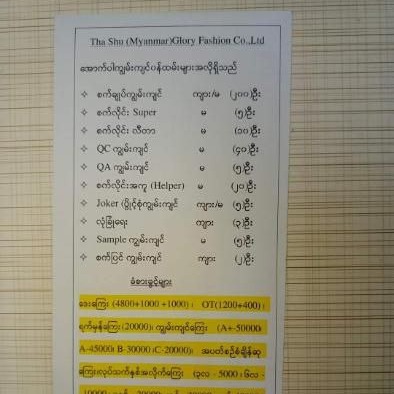 Tha Shu (Myanmar)Glory Fashion Co.,Ltd
အောက်ပါကျွမ်းကျင်ဝန်ထမ်းများအလိုရှိသည်
စက်ချုပ်ကျွမ်းကျင် ကျား/မ (၂၀၀)ဦး
စက်လိုင်း Super မ (၅)ဦး
စက်လိုင်း လီတာ မ (၁၀)ဦး
QC ကျွမ်းကျင် မ (၄၀)ဦး
QA ကျွမ်းကျင် မ (၅)ဦး
စက်လိုင်းအကူ (Helper) မ (၂၀)ဦး
Joker (ပွိုင့်စုံကျွမ်းကျင် ကျား/မ (၅)ဦး
လုံခြုံရေး ကျား (၃)ဦး
Sample ကျွမ်းကျင် မ (၅)ဦး
စက်ပြင် ကျွမ်းကျင် ကျား (၂)ဦး
ခံစားခွင့်များ
ဒေးကြေး (4800+1000 +1000) ၊ OT(1200+400) ၊
ရက်မှန်ကြေး(20000)၊ ကျွမ်းကျင်ကြေး (A+-50000၊
A-45000၊ B-30000 ၊C-20000)၊ အပတ်စဉ်စံချိန်ဆု
ကြေး၊လုပ်သက်နှစ်အလိုက်ကြေး (၃လ - 5000 ၊ ၆လ -